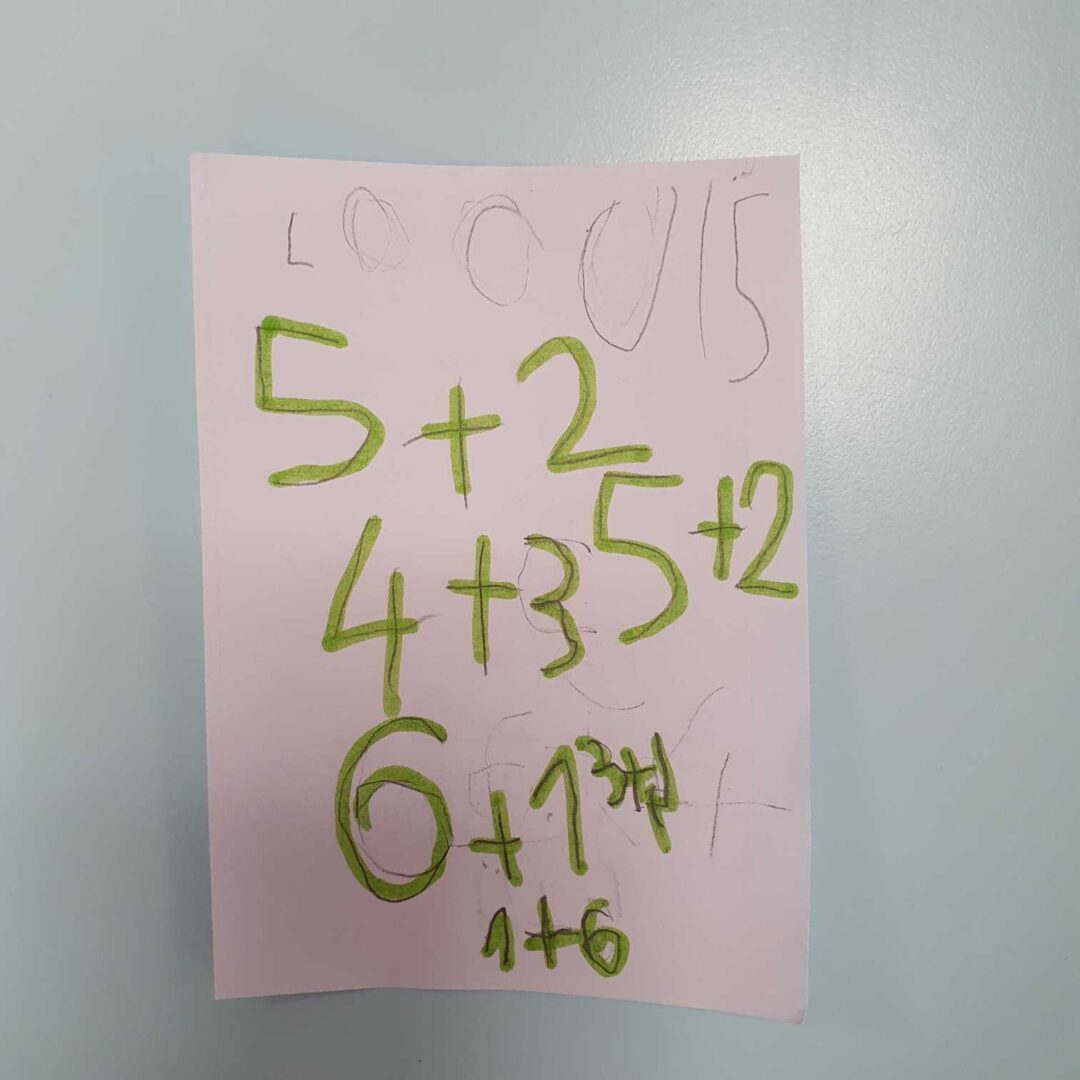 5+2
5+2
4+3
6+1
3+4
1+6